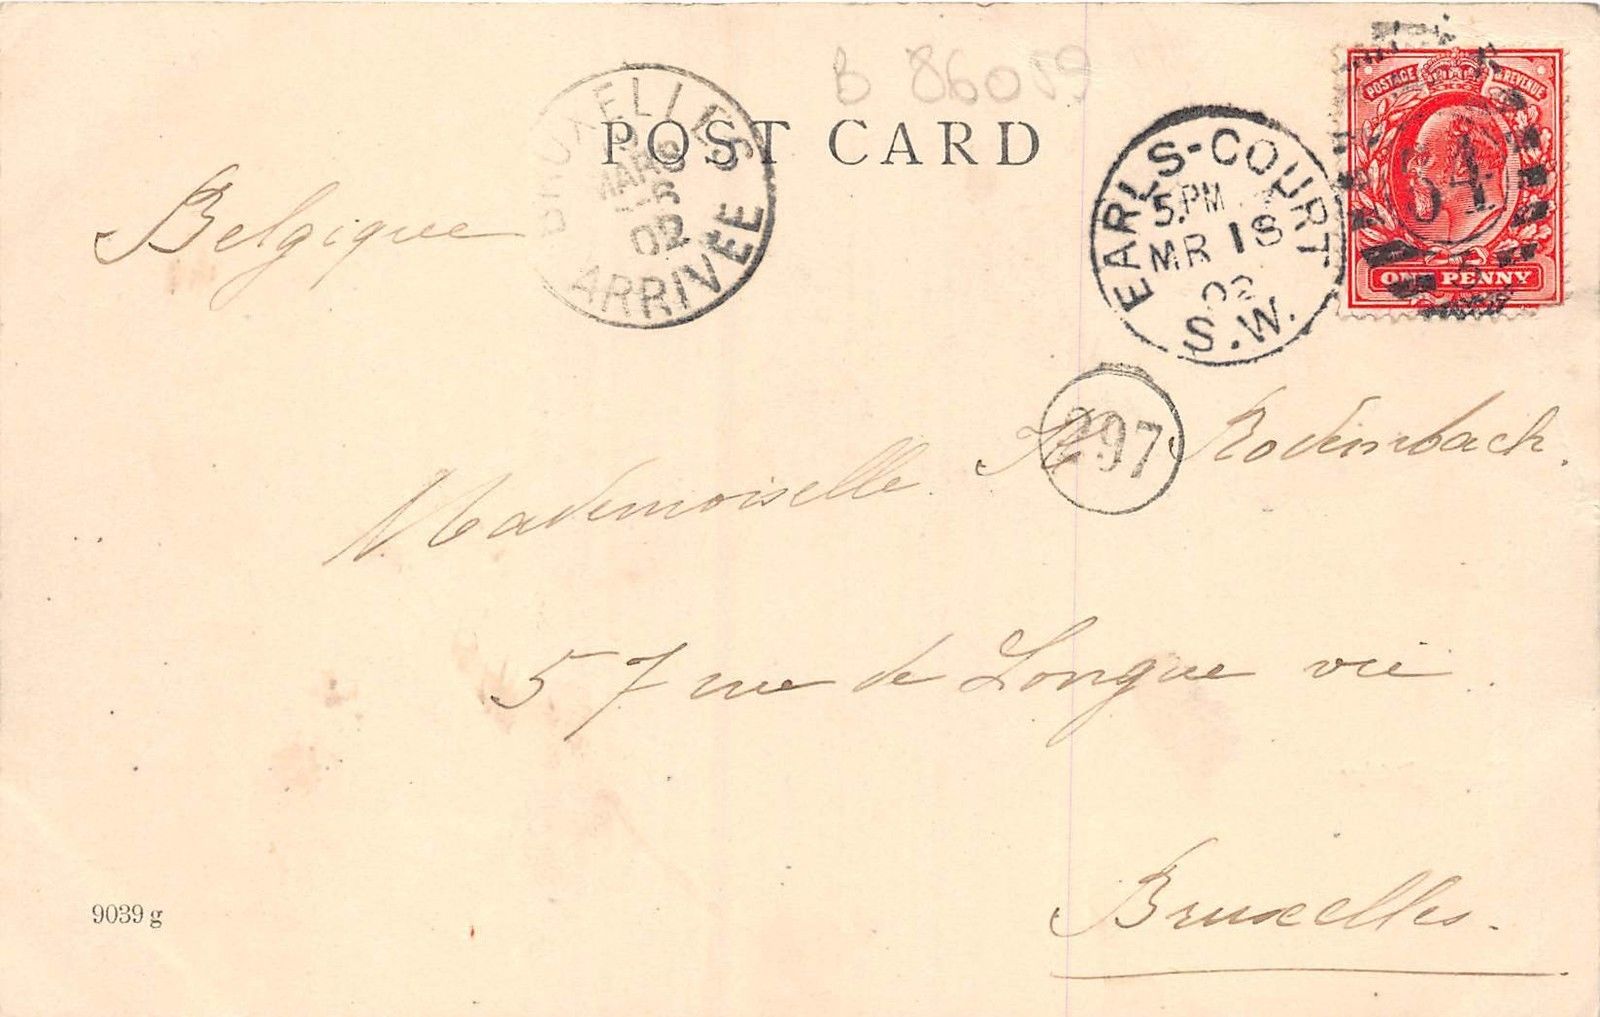 B 86059
POST CARD
BRUXELLES
MARS
16
02
ARRIVÉE
EARLS-COURT
5.PM
MR 18
02
S.W.
POSTAGE & REVENUE
54
ONE PENNY
Belgique
297
Mademoiselle Rodenbach.
57 rue de Longue vie.
Bruxelles.
9039 g